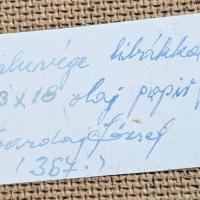 aluvége libákka
3 x 18 olaj papir
Várdai József
(367.)